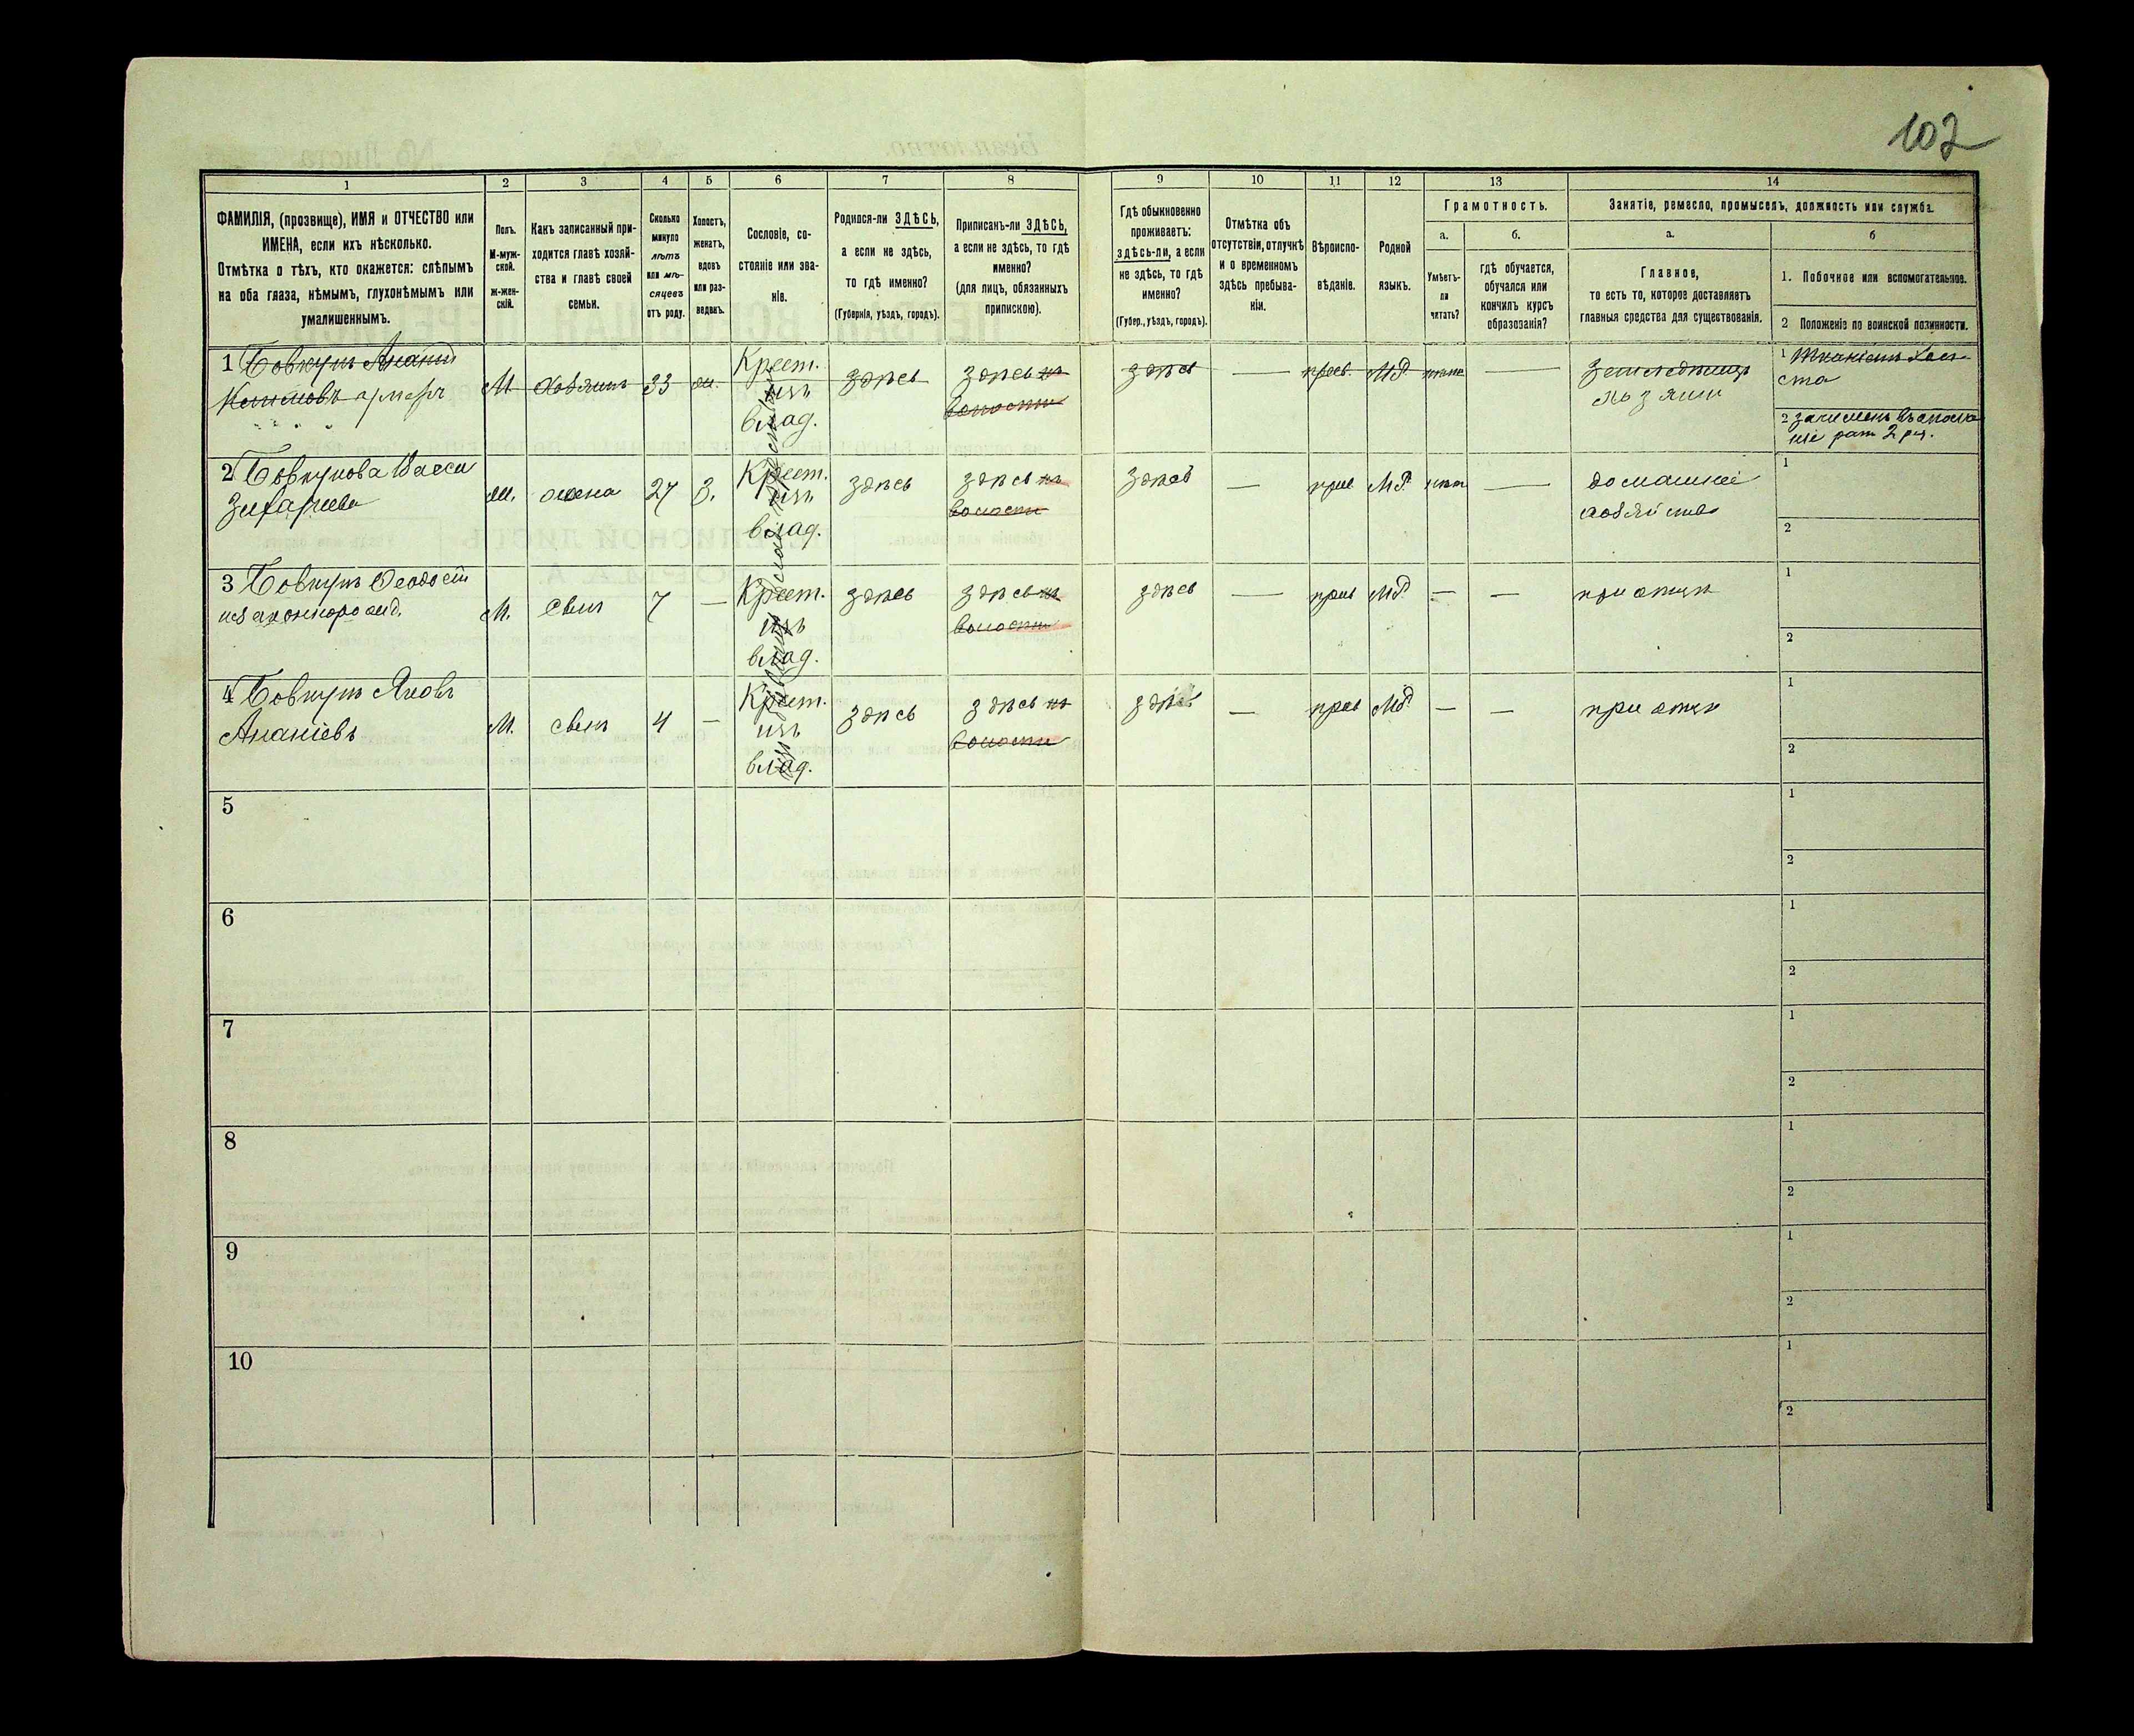 102
1 2 3 4 5 6 7 8 9 10 11 12 13 14
ФАМИЛІЯ, (прозвище), ИМЯ и ОТЧЕСТВО или
ИМЕНА, если ихъ нѣсколько.
Отмѣтка о тѣхъ, кто окажется: слѣпымъ
на оба глаза, нѣмымъ, глухонѣмымъ или
умалишеннымъ.
Полъ.
М-муж-
ской.
ж-жен-
скій.
Какъ записанный при-
ходится главѣ хозяй-
ства и главѣ своей
семьи.
Сколько
минуло
лѣтъ
или мѣ-
сяцевъ
отъ роду.
Холостъ,
женатъ,
вдовъ
или раз-
веденъ.
Сословіе, со-
стояніе или зва-
ніе.
Родился-ли ЗДѢСЬ,
а если не здѣсь,
то гдѣ именно?
(Губернія, уѣздъ, городъ).
Приписанъ-ли ЗДѢСЬ,
а если не здѣсь, то гдѣ
именно?
(для лицъ, обязанныхъ
припискою).
Гдѣ обыкновенно
проживаетъ:
здѣсь-ли, а если
не здѣсь, то гдѣ
именно?
(Губер., уѣздъ, городъ).
Отмѣтка объ
отсутствіи, отлучкѣ
и о временномъ
здѣсь пребыва-
ніи.
Вѣроиспо-
вѣданіе.
Родной
языкъ.
Грамотность.
а.
Умѣетъ-
ли
читать?
б.
гдѣ обучается,
обучался или
кончилъ курсъ
образованія?
Занятіе, ремесло, промыселъ, должность или служба.
а.
Главное,
то есть то, которое доставляетъ
главныя средства для существованія.
б
1. Побочное или вспомогательное.
2 Положеніе по воинской повинности.
1 Бовкунъ Ананій
М хозяинъ 33 Крест. здѣсь здѣсь въ здѣсь — прав. М.Р. нѣтъ — 1
изъ волости
влад. 2
2 Бовкунова
жена 27 З. Крест. здѣсь здѣсь въ здѣсь — прав М.Р. нѣтъ — домашнее 1
изъ волости хозяйство
влад. 2
3 Бовкунъ Феодосій
М. сынъ 7 — Крест. здѣсь здѣсь въ здѣсь — прав МР — — при отцѣ 1
изъ волости
влад. 2
4 Бовкунъ Яковъ
Ананіевъ М. сынъ 4 — Крест. здѣсь здѣсь въ здѣсь — прав МР — — при отцѣ 1
изъ волости
влад. 2
5 1
2
6 1
2
7 1
2
8 1
2
9 1
2
10 1
2